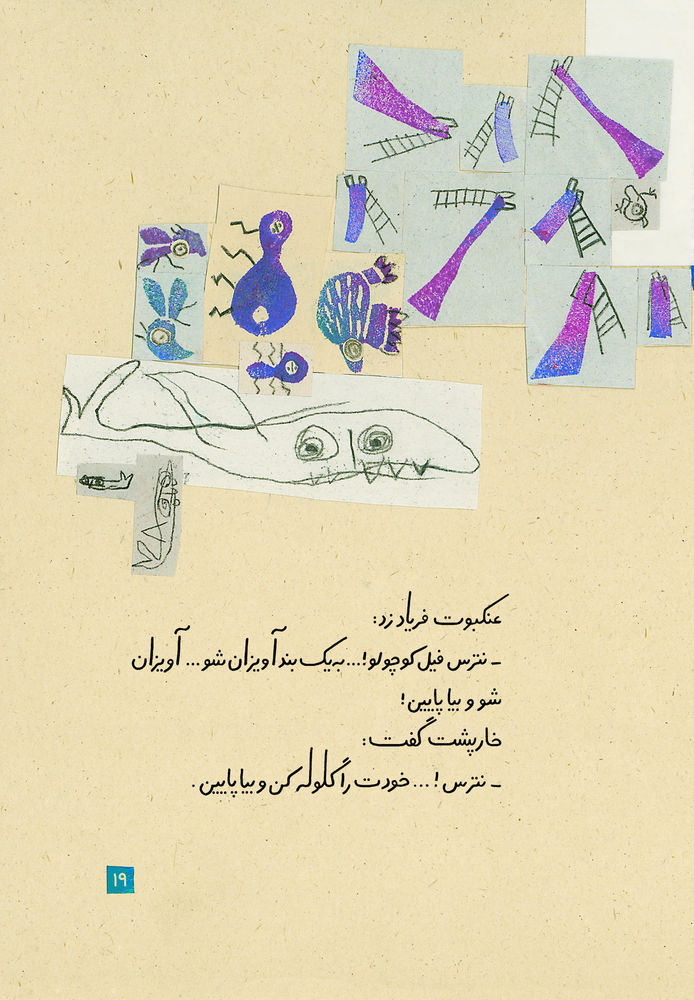 عنکبوت فریاد زد:
ـ نترس فیل کوچولو!... به یک بند آویزان شو... آویزان
شو و بیا پایین!
خارپشت گفت:
ـ نترس!... خودت را گلوله کن و بیا پایین.
۱۹